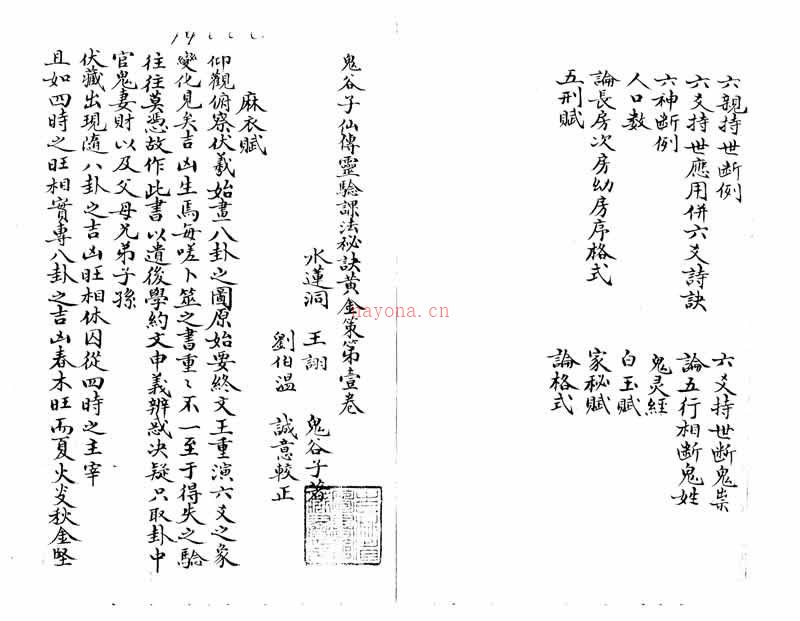 六親持世断例
六爻持世應用併六爻詩訣
六神断例
人口数
論長房次房幼房序格式
五刑賦
六爻持世断鬼祟
論五行相断鬼姓
鬼灵經
白玉賦
家秘賦
論格式
鬼谷子仙傳靈驗課法祕訣黄金策第壹卷
水蓮洞 王詡 鬼谷子著
劉伯温 誠意較正
麻衣賦
仰觀俯察伏羲始畫八卦之圖原始要終文王重演六爻之象
變化見矣吉凶生焉每嗟卜筮之書重〻不一至于得失之驗
往往莫憑故作此書以遺後學約文申義辨惑决疑只取卦中
官鬼妻財以及父母兄弟子孫
伏藏出現隨八卦之吉凶旺相休囚從四時之主宰
且如四時之旺相實專八卦之吉凶春木旺而夏火炎秋金堅
nayona.cn